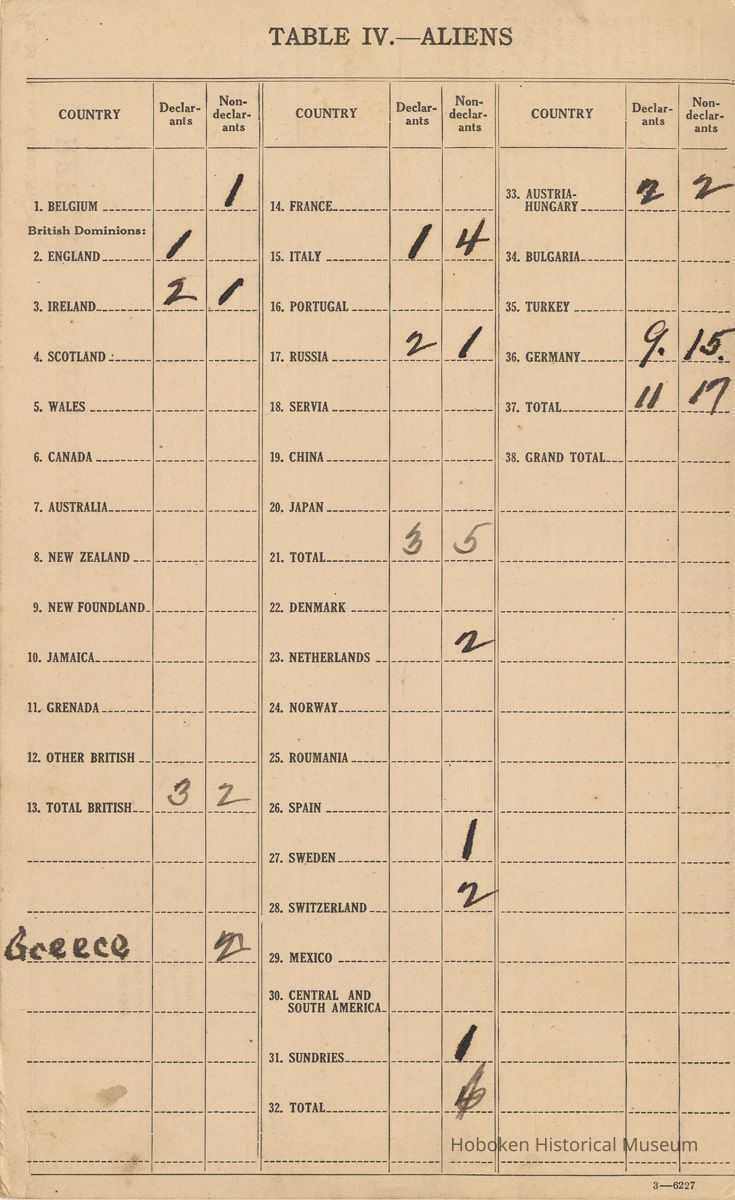 TABLE IV.—ALIENS
COUNTRY Declar-ants Non-declar-ants
1. BELGIUM 1
British Dominions:
2. ENGLAND 1
3. IRELAND 2 1
4. SCOTLAND
5. WALES
6. CANADA
7. AUSTRALIA
8. NEW ZEALAND
9. NEW FOUNDLAND
10. JAMAICA
11. GRENADA
12. OTHER BRITISH
13. TOTAL BRITISH 3 2
Greece 2
COUNTRY Declar-ants Non-declar-ants
14. FRANCE
15. ITALY 1 4
16. PORTUGAL
17. RUSSIA 2 1
18. SERVIA
19. CHINA
20. JAPAN
21. TOTAL 3 5
22. DENMARK
23. NETHERLANDS 2
24. NORWAY
25. ROUMANIA
26. SPAIN
27. SWEDEN 1
28. SWITZERLAND 2
29. MEXICO
30. CENTRAL AND
SOUTH AMERICA
31. SUNDRIES 1
32. TOTAL
COUNTRY Declar-ants Non-declar-ants
33. AUSTRIA-
HUNGARY 2 2
34. BULGARIA
35. TURKEY
36. GERMANY 9. 15.
37. TOTAL 11 17
38. GRAND TOTAL
Hoboken Historical Museum
3—6227